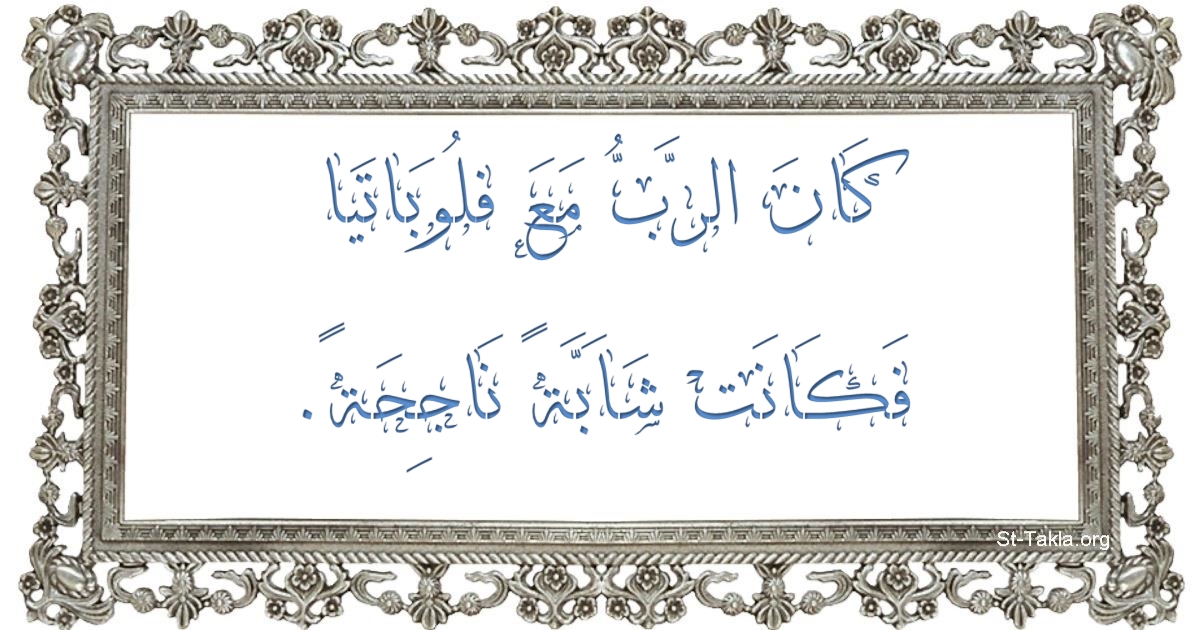 كَانَ الرَّبُّ مَعَ فلُوبَاتَيَا
فَكَانَت شَابَّةً نَاجِحَةً.
St-Takla.org